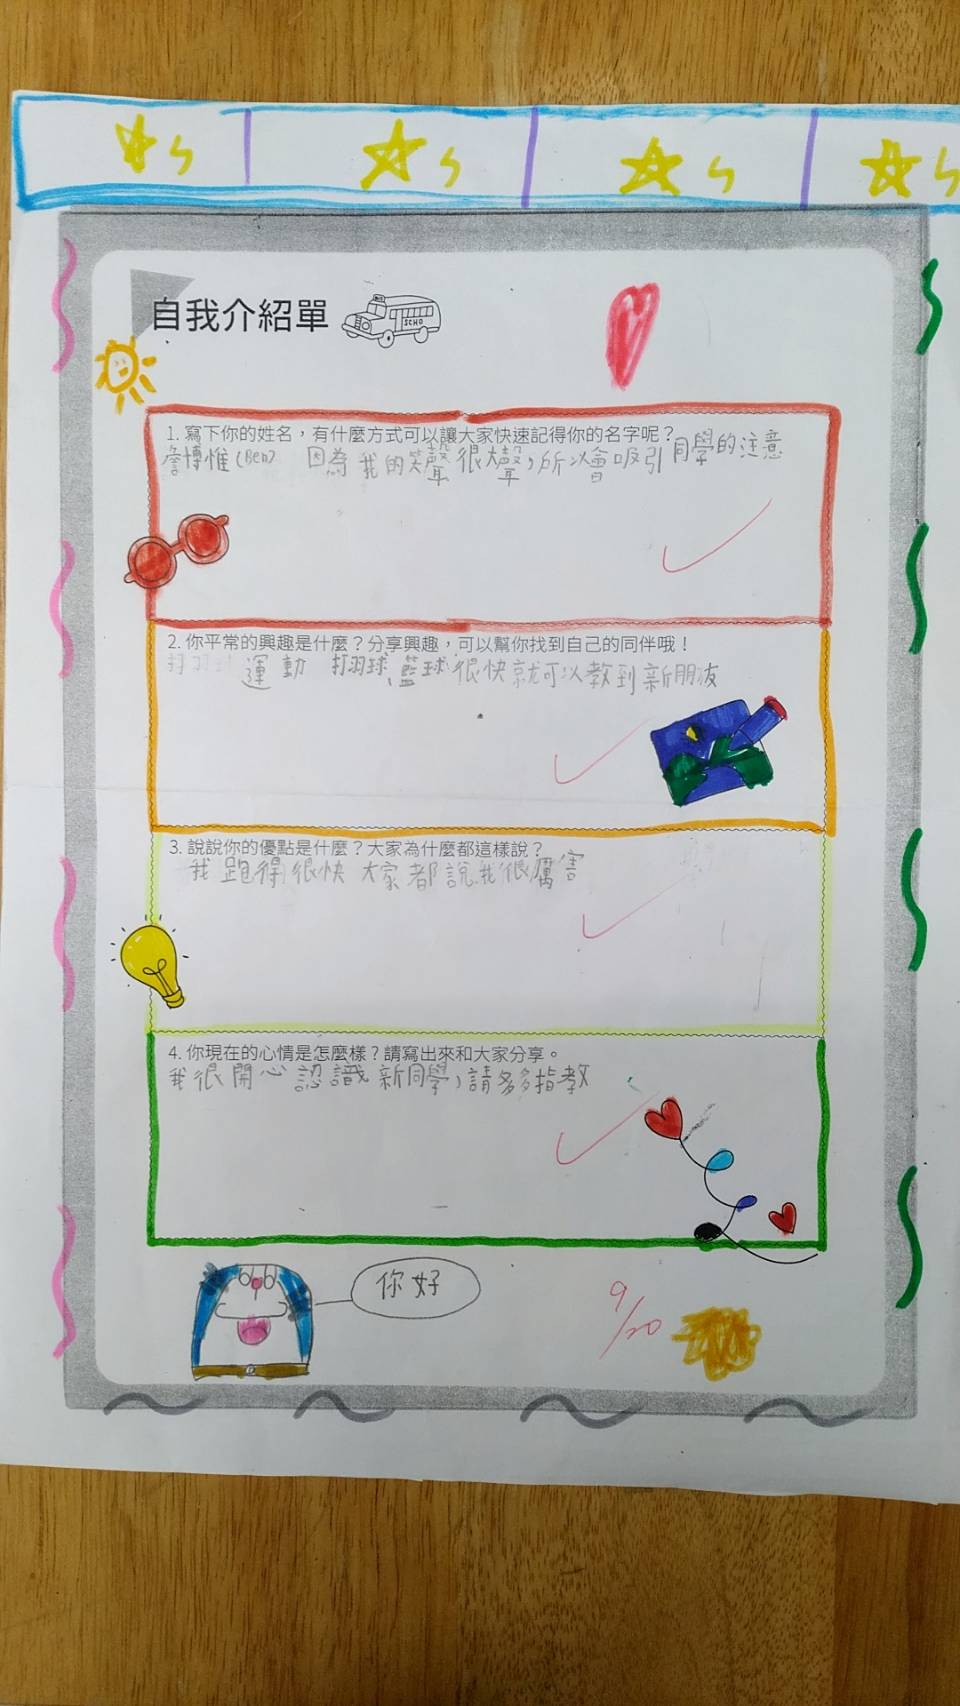 自我介紹單
SCHO
1. 寫下你的姓名，有什麼方式可以讓大家快速記得你的名字呢？
詹博惟(Ben) 因為我的笑聲很大聲，所以會吸引同學的注意
2. 你平常的興趣是什麼？分享興趣，可以幫你找到自己的同伴哦！
運動 打羽球、籃球 很快就可以教到新朋友
3. 說說你的優點是什麼？大家為什麼都這樣說？
我跑得很快 大家都說我很厲害
4. 你現在的心情是怎麼樣？請寫出來和大家分享。
我很開心認識新同學，請多多指教
你好
9/20